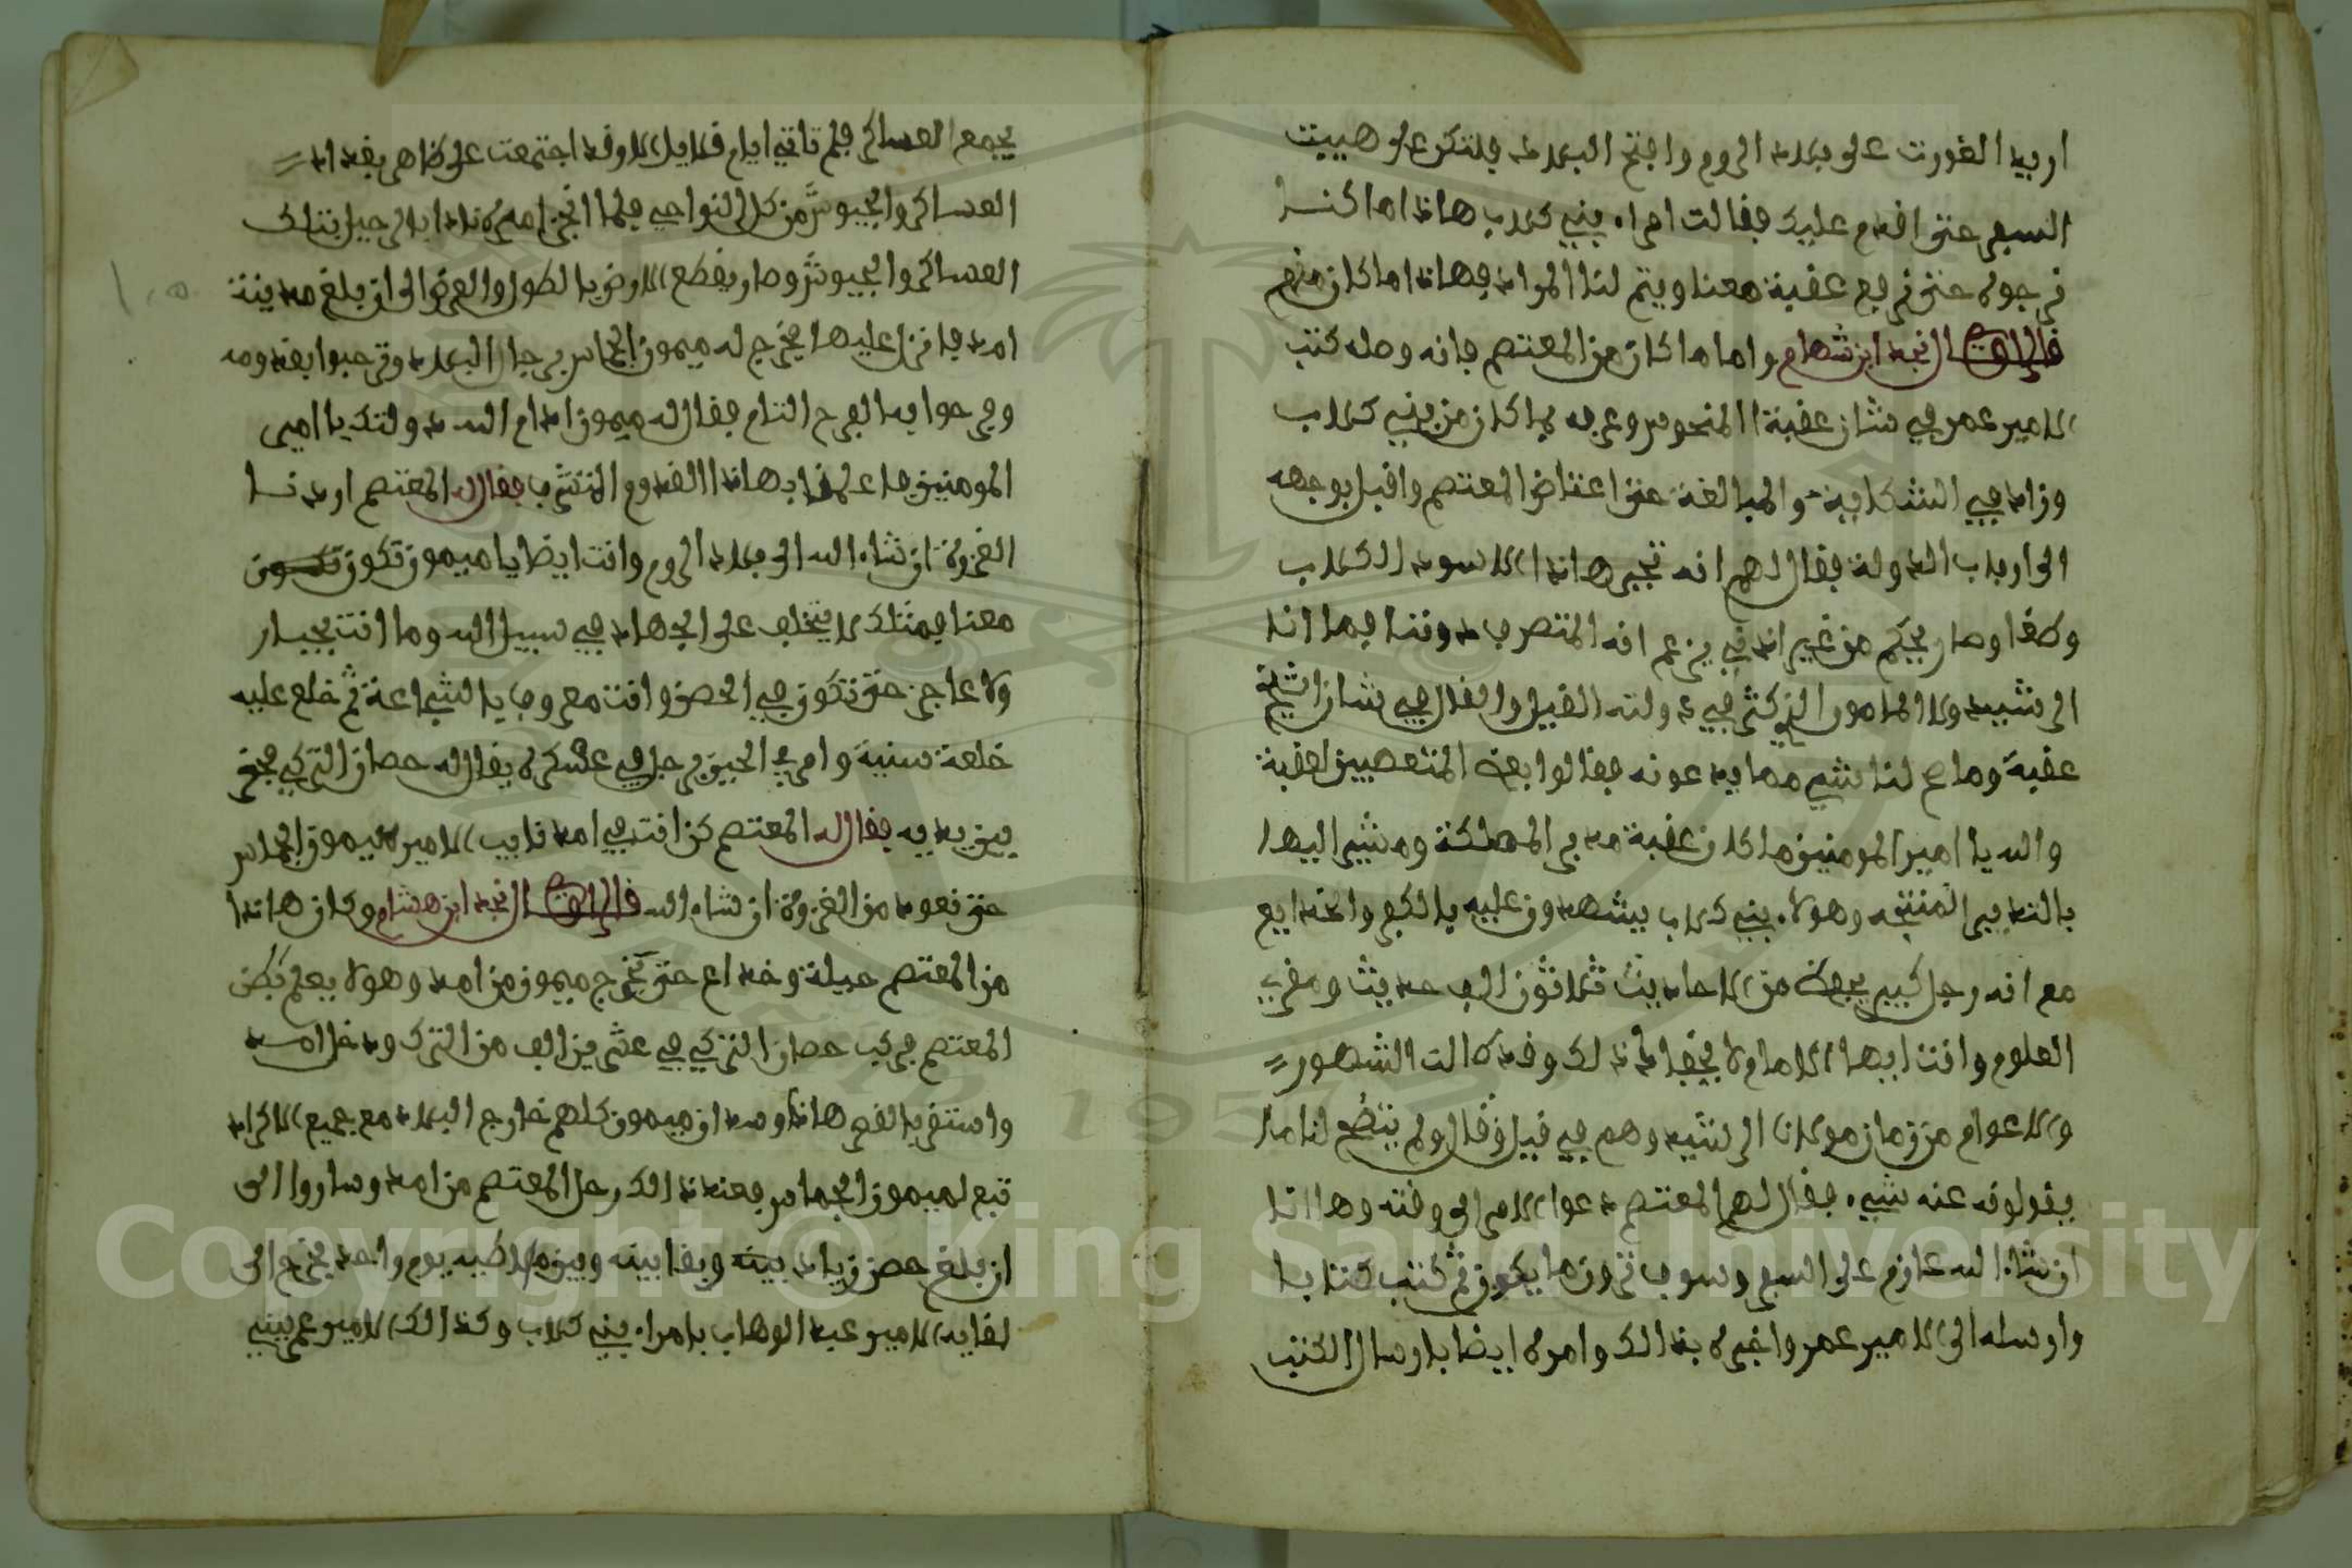 اريد الغورت على بلاد الروم وافتح البلاد فلتكن على هيبت
السفر حتى اقدم عليك فقالت امراء بني كلاب هاذا ما كنا
نرجوه حتى نرفع عقبة معنا ويتم لنا المراد فهاذا ما كان منهم
قال الراوي نجد ابن هشام واما ما كان من المعتصم فانه وصله كتب
الامير عمر في شان عقبة المنحوس وعرفه بما كان من بني كلاب
وزاد في الشكاية والمبالغة حتى اغتاض المعتصم واقبل بوجهه
الى ارباب الدولة فقال لهم انه تجبر هاذا الاسود الكلاب
وطغا وصار يحكم من غير اذني يزعم انه المتصرف دوننا فما انا
الرشيد ولا المامون الذي كثر في دولته القيل والقال في شان الشيخ
عقبة وما صح لنا شيء مما يدعونه فقالوا بعض المتعصبين لعقبة
والله يا امير المومنين ما كان عقبة مدبر المملكة ومشير اليها
بالتدابير المنتجه وهولاء بني كلاب يشهدون عليه بالكفر والخدايع
مع انه رجل كبير يحفظ من الاحاديث ثلاثون الف حديث ومغرب
العلوم وانت ايها الامام لا يخفاك ذلك وقد طالت الشهور
والاعوام من زمان مولانا الرشيد وهم في قيل وقال ولم يتضح لنا ما
يقولونه عنه شيء فقال لهم المعتصم دعوا الامر الى وقته وها انا
ان شاء الله عازم على السفر وسوف ترون ما يكون ثم كتب كتابا
وارسله الى الامير عمر واخبره بذالك وامره ايضا بارسال الكتب
يجمع العساكر فلم تاتي ايام قلايل الا وقد اجتمعت على ظاهر بغداد
العساكر والجيوش من كل النواحي فلما انجز امره نادا بالرحيل بتلك
العساكر والجيوش وصار يقطع الارض بالطول والعرض الى ان بلغ مدينة
امد فانزل عليها فخرج له ميمون الجماس برجال البلد وترحبوا بقدومه
وفرحوا به الفرح التام فقال له ميمون ادام الله دولتك يا امير
المومنين ما علمنا بهاذا القدوم المتشرف فقال له المعتصم اردنا
الغزوة ان شاء الله الى بلاد الروم وانت ايضا يا ميمون تكون تكون
معنا فمثلك لا يتخلف على الجهاد في سبيل الله وما انت بجبار
ولا عاجز حتى تكون في الحصن وانت معروف بالشجاعة ثم خلع عليه
خلعة سنية وامر في الحين برجل في عسكره يقال له حصان التركي فحضر
بين يديه فقال له المعتصم كن انت في امد نايب الامير ميمون الجماس
حتى نعود من الغزوة ان شاء الله قال الراوي نجد ابن هشام وكان هاذا
من المعتصم حيلة وخداع حتى يخرج ميمون من امد وهو لا يعلم بكن
المعتصم فركب حصان التركي في عشرين الف من الترك ودخل امد
واستقر بالقصر هاذا وسودان ميمون كلهم خارج البلد مع جميع الاكراد
تبع لميمون الجماس فعند ذالك رحل المعتصم من امد وساروا الى
ان بلغ حصن زياد بينه وبقا بينه وبين ملاطيه يوم واحد فخرج الى
لقايه الامير عبد الوهاب بامراء بني كلاب وكذالك الامير عمر ببني
Copyright © King Saud University
1957